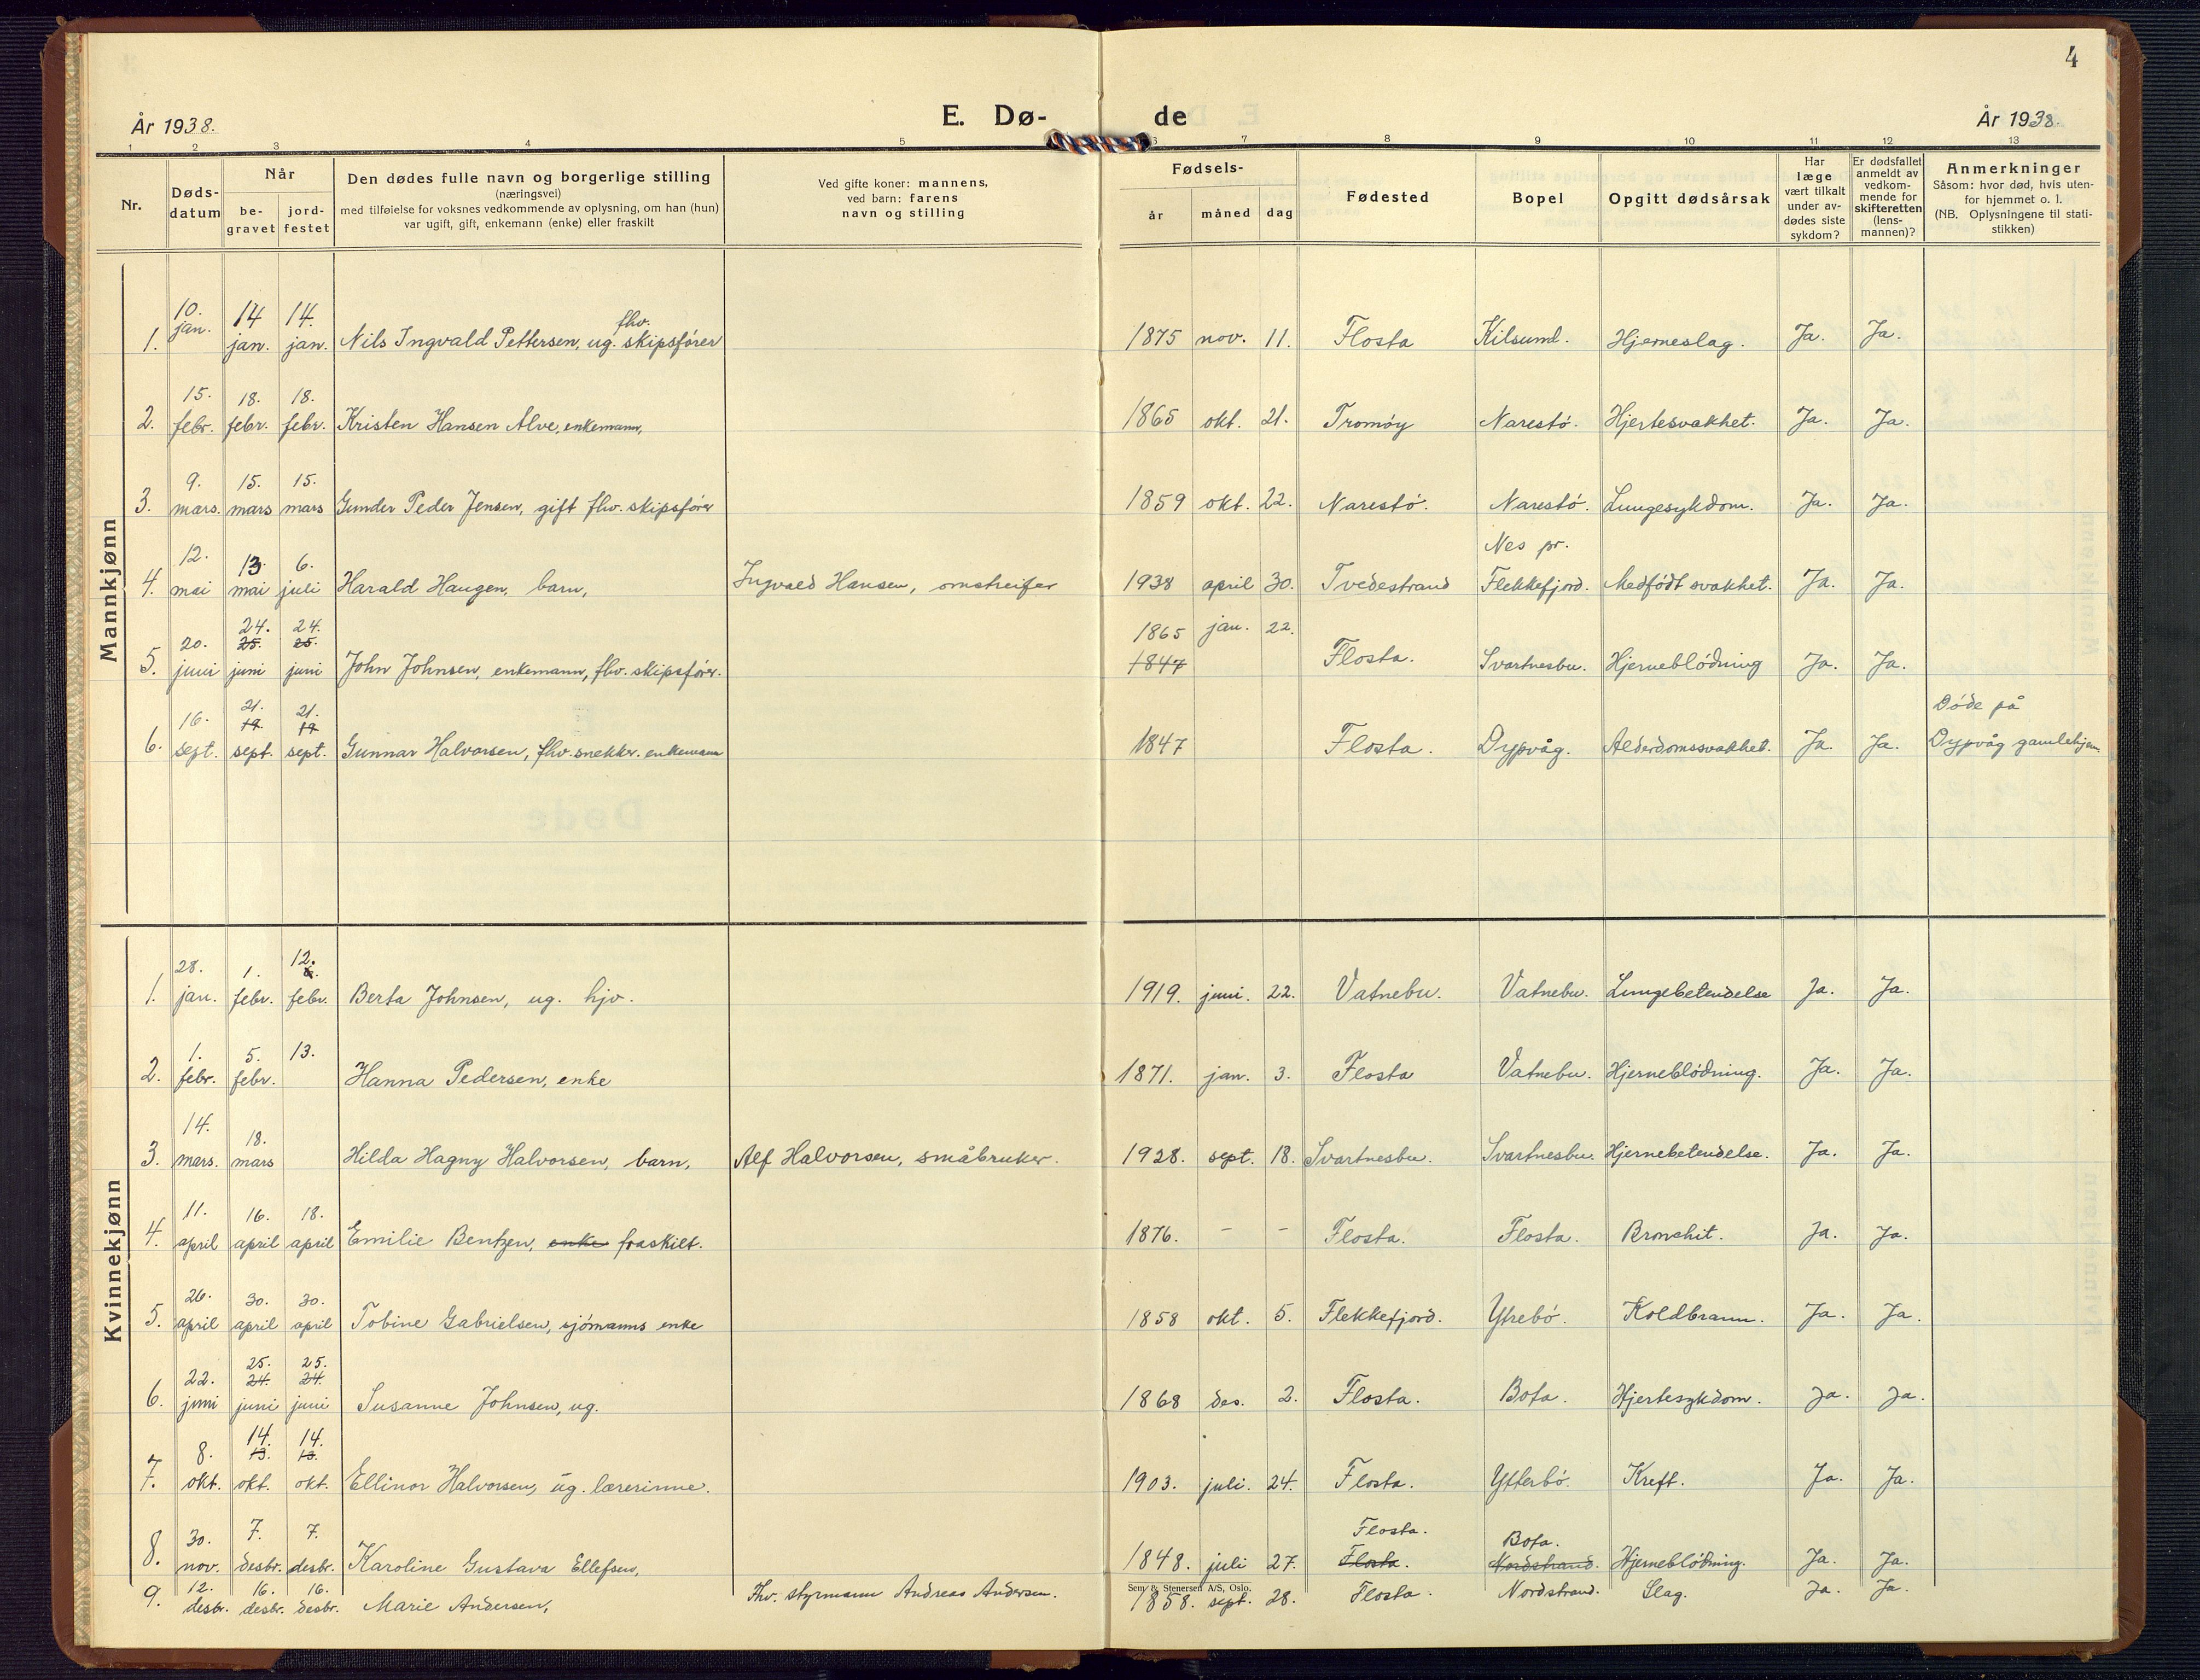 4
År 1938.
E. Dø- de
År 1938.
1 2 3 4 5 6 7 8 9 10 11 12 13
Nr.
Døds-
datum
Når
be-
gravet
jord-
festet
Den dødes fulle navn og borgerlige stilling
(næringsvei)
med tilføielse for voksnes vedkommende av oplysning, om han (hun)
var ugift, gift, enkemann (enke) eller fraskilt
Ved gifte koner: mannens,
ved barn: farens
navn og stilling
Fødsels-
år måned dag
Fødested
Bopel
Opgitt dødsårsak
Har
læge
vært tilkalt
under av-
dødes siste
sykdom?
Er dødsfallet
anmeldt av
vedkom-
mende for
skifteretten
(lens-
mannen)?
Anmerkninger
Såsom: hvor død, hvis uten-
for hjemmet o. l.
(NB. Oplysningene til stati-
stikken)
Mannkjønn
10. 14 14. fhv.
1. jan. jan. jan. Nils Ingvald Pettersen, ug. skipsfører 1875 nov. 11. Flosta Kilsund. Hjerneslag. Ja. Ja.
15. 18. 18.
2. febr. febr. febr. Kristen Hansen Alve, enkemann, 1865 okt. 21. Tromøy Narestø. Hjertesvakhet. Ja. Ja.
9. 15. 15.
3. mars. mars mars Gunder Peder Jensen, gift fhv. skipsfører 1859 okt. 22. Narestø. Narestø. Lungesykdom. Ja. Ja.
12. 13. 6. Nes pr.
4. mai mai juli Harald Haugen, barn, Ingvald Hansen, omstreifer 1938 april 30. Tvedestrand Flekkefjord. Medfødt svakhet. Ja. Ja.
24. 24.
20. 25. 25. 1865 jan. 22.
5. juni juni juni John Johnsen, enkemann, fhv. skipsfører. 1847 Flosta. Svartnesbu. Hjerneblødning Ja. Ja.
21. 21. Døde på
16. 19. 19.
6. sept. sept. sept. Gunnar Halvorsen, fhv. snekker. enkemann 1847 Flosta. Dypvåg. Alderdomssvakhet. Ja. Ja. Dypvåg gamlehjem
Kvinnekjønn
28. 1. 12.
1. jan. febr. febr. Berta Johnsen, ug. hjv. 1919. juni. 22. Vatnebu. Vatnebu. Lungebetendelse Ja. Ja.
1. 5. 13.
2. febr. febr. Hanna Pedersen, enke 1871. jan. 3. Flosta Vatnebu. Hjerneblødning. Ja. Ja.
14. 18.
3. mars. mars Hilda Hagny Halvorsen, barn, Alf Halvorsen, småbruker. 1928. sept. 18. Svartnesbu. Svartnesbu. Hjernebetendelse. Ja. Ja.
11. 16. 18.
4. april april april Emilie Bentzen, enke fraskilt. 1876. - - Flosta. Flosta. Bronchit. Ja. Ja.
26. 30. 30.
5. april april april Tobine Gabrielsen, sjømanns enke 1858 okt. 5. Flekkefjord. Ytrebø. Koldbrann. Ja. Ja.
25. 25.
22. 24. 24.
6. juni juni juni Susanne Johnsen, ug. 1868 des. 2. Flosta. Bota. Hjertesykdom. Ja. Ja.
14. 14.
8. 13. 13.
7. okt. okt. okt. Ellinor Halvorsen, ug. lærerinne. 1903. juli. 24. Flosta. Ytterbø. Kreft. Ja. Ja.
30. 7. 7. Flosta. Bota.
8. nov. desbr. desbr. Karoline Gustava Ellefsen, 1848. juli 27. Flosta. Nordstrand. Hjerneblødning. Ja. Ja.
Sem & Stenersen A/S, Oslo.
12. 16. 16.
9. desbr. desbr. desbr. Marie Andersen, Fhv. styrmann Andreas Andersen. 1858. sept. 28. Flosta. Nordstrand. Slag. Ja. Ja.